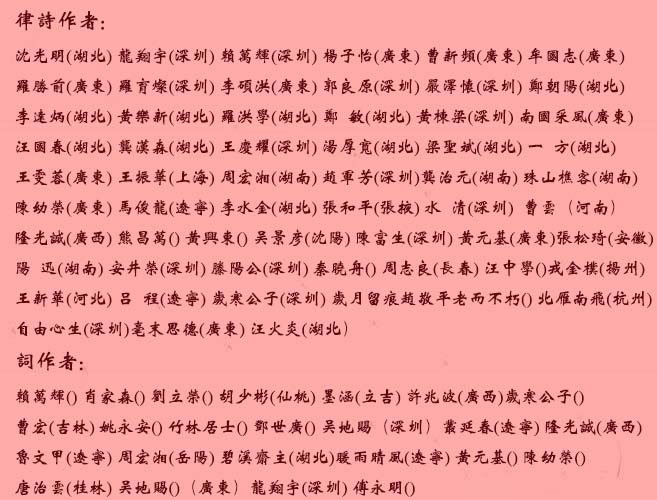 律詩作者:
沈光明(湖北) 龍翔宇(深圳) 賴萬輝(深圳) 楊子怡(廣東) 曹新頻(廣東) 牟國志(廣東)
羅勝前(廣東) 羅育燦(深圳) 李碩洪(廣東) 郭良原(深圳) 嚴澤懷(深圳) 鄭朝陽(湖北)
李達炳(湖北) 黃樂新(湖北) 羅洪學(湖北) 鄭 敏(湖北) 黃棟梁(深圳) 南國采風(廣東)
汪國春(湖北) 龔漢森(湖北) 王慶耀(深圳) 湯厚寬(湖北) 梁聖斌(湖北) 一 方(湖北)
王雯蓉(廣東) 王振華(上海) 周宏湘(湖南) 趙軍芳(深圳)龔治元(湖南) 珠山樵客(湖南)
陳幼榮(廣東) 馬俊龍(遼寧) 李水金(湖北) 張和平(張掖) 水 清(深圳) 曹雲 (河南)
隆光誠(廣西) 熊昌萬() 黃興東() 吴景彦(沈陽) 陳富生(深圳) 黃元基(廣東)張松琦(安徽)
陽 迅(湖南) 安井榮(深圳) 滕陽公(深圳) 秦曉舟() 周志良(長春) 汪中學()戎金樸(揚州)
王新華(河北) 吕 程(遼寧) 歲寒公子(深圳) 歲月留痕趙敬平老而不朽() 北雁南飛(杭州)
自由心生(深圳)毫末思德(廣東) 汪火炎(湖北)
詞作者:
賴萬輝() 肖家森() 劉立榮() 胡少彬(仙桃) 墨涵(立吉) 許兆波(廣西)歲寒公子()
曹宏(吉林) 姚永安() 竹林居士() 鄧世廣() 吴地賜 (深圳) 叢延春(遼寧) 隆光誠(廣西)
魯文甲(遼寧) 周宏湘(岳陽) 碧溪齋主(湖北)暖雨晴風(遼寧) 黃元基() 陳幼榮()
唐治雲(桂林) 吴地賜() (廣東) 龍翔宇(深圳) 傅永明()